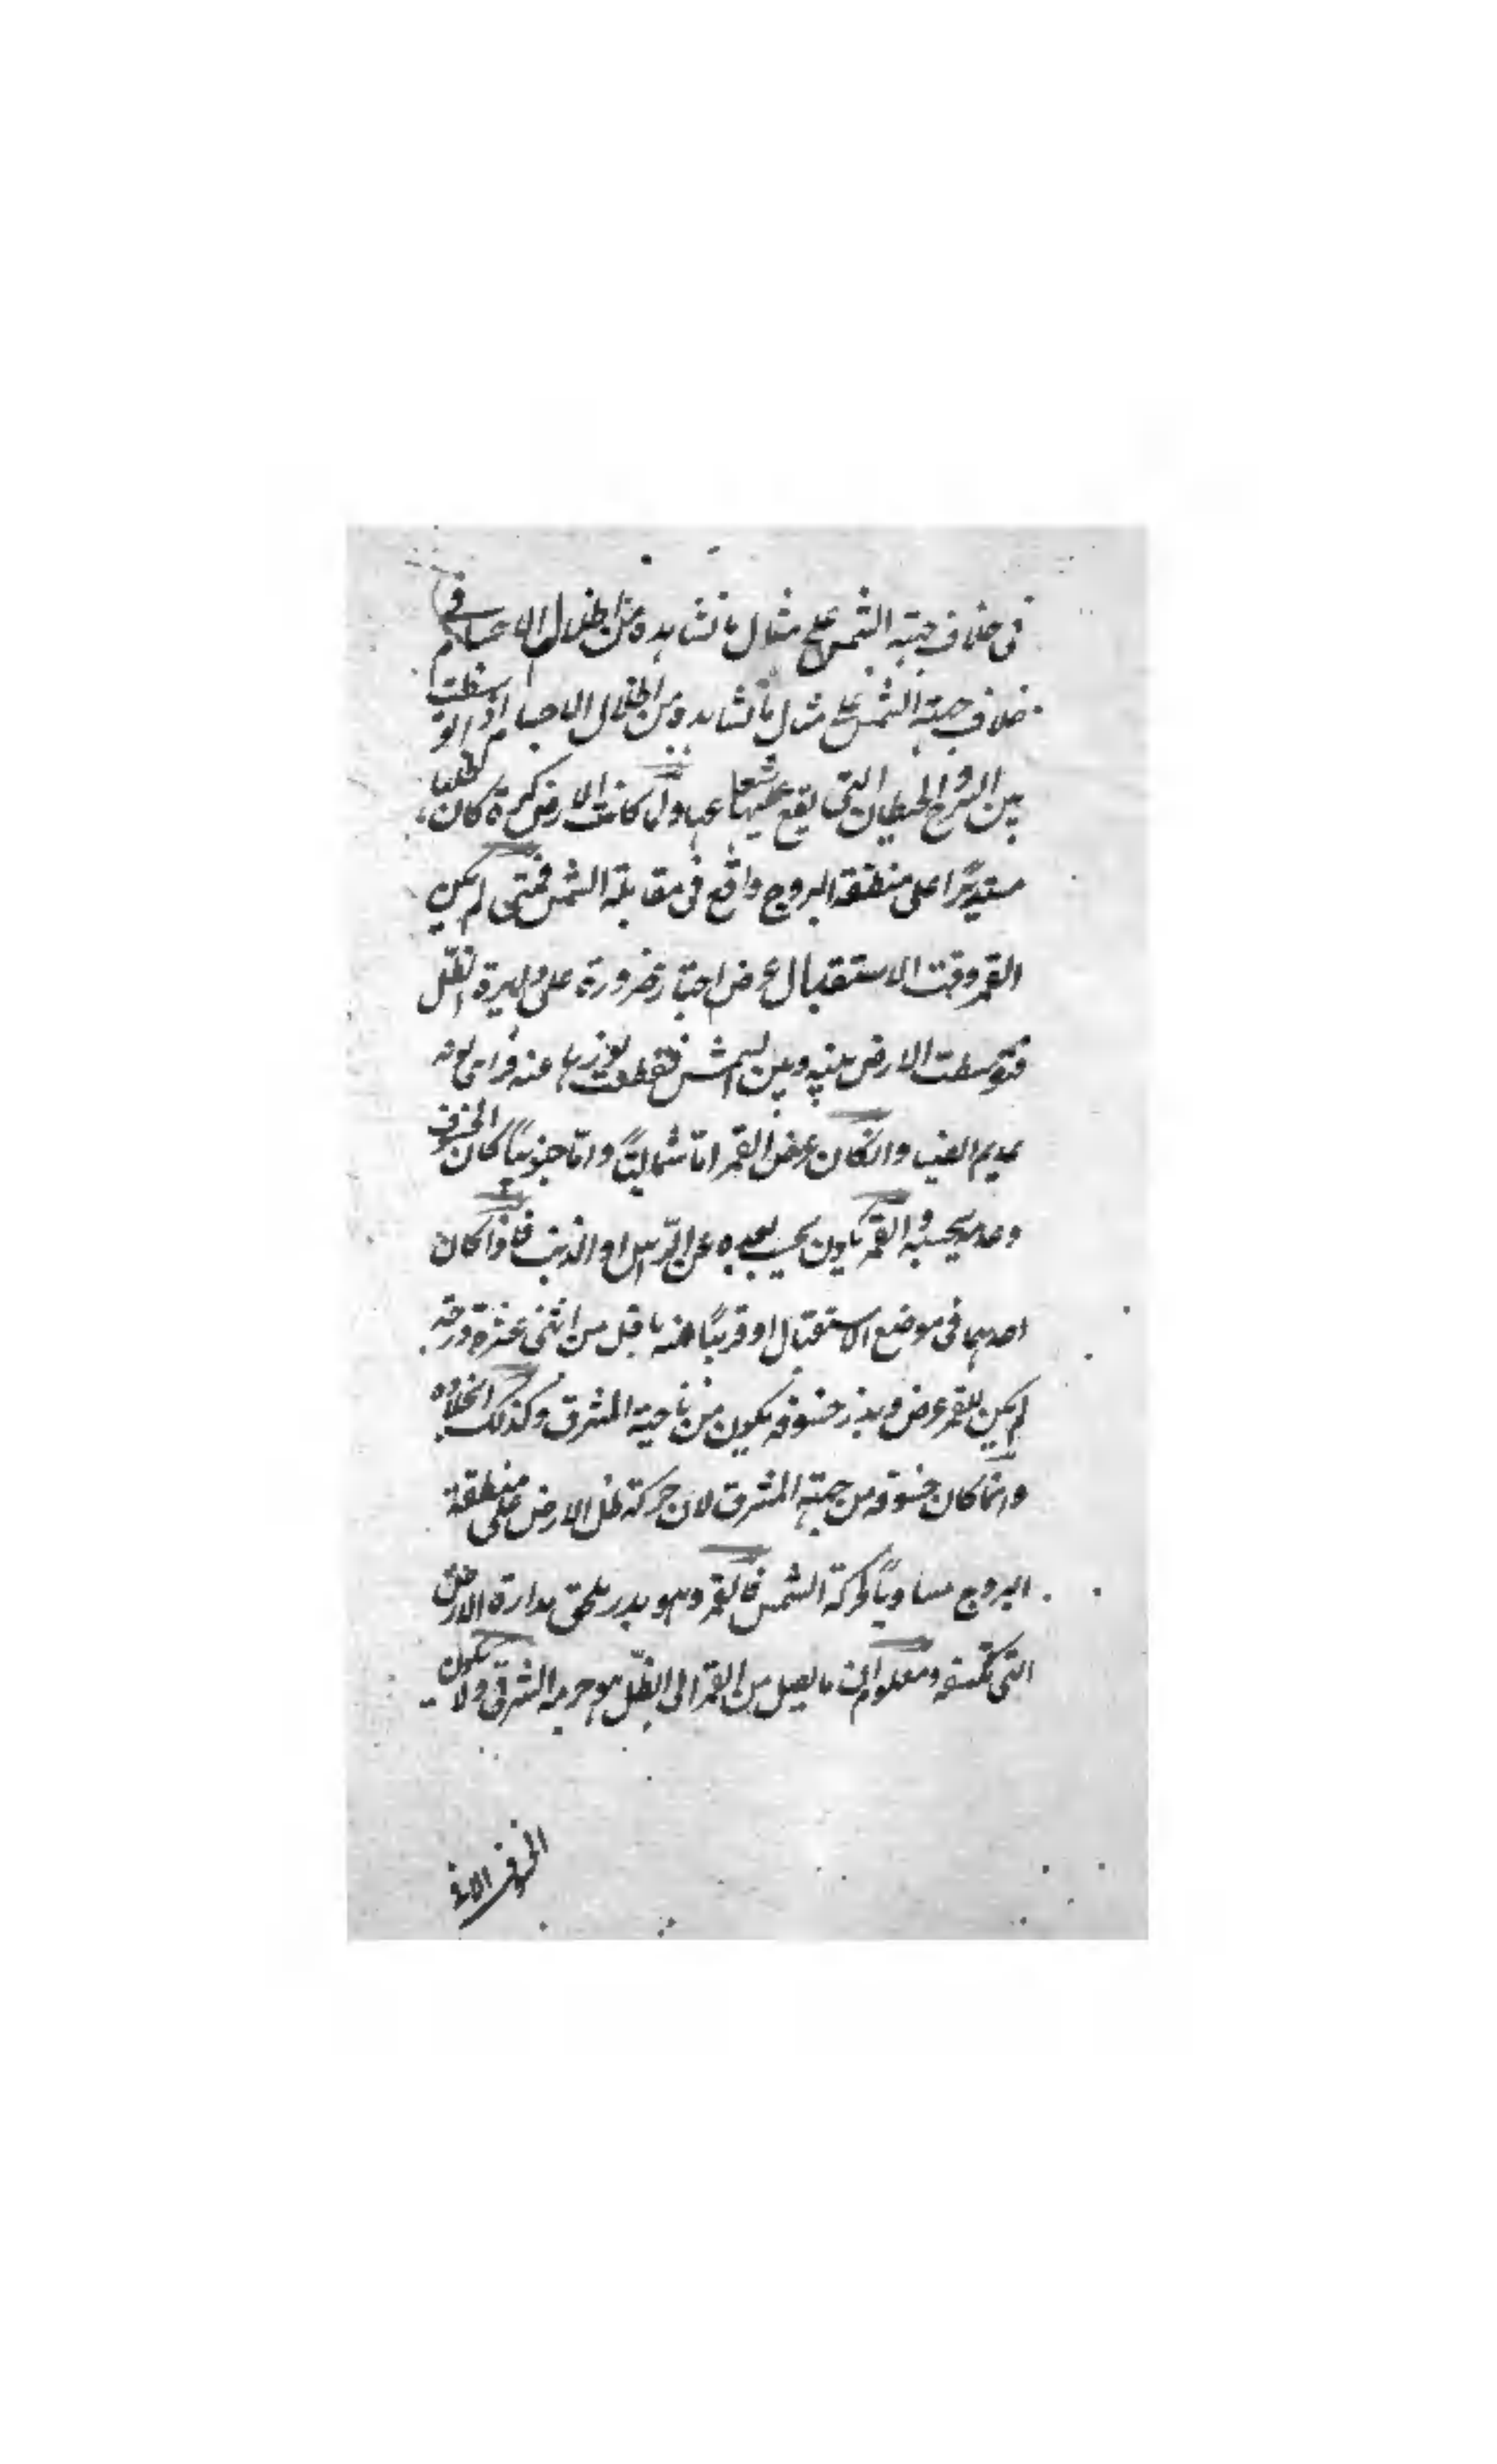 فى خلاف جهة الشمس على مثال ما نشاهده من اظلال الاجسام فى
خلاف جهة الشمس على مثال ما نشاهده من اظلال الاجسام اذا توسطت
بين السرج والحيطان التى يقع عليها شعاعها ولما كانت الارض كرة كان ظلها
مستديرًا على منطقة البروج واقع فى مقابلة الشمس فمتى لم يكن
القمر وقت الاستقبال عرض اجتاز ضرورة على دايرة الظل
فتوسطت الارض بينه وبين الشمس فقطعت نورها عنه
عديم الضيا وان كان عرض القمر اما شماليًا واما جنوبيًا كان الخسوف
وعرض القمر يكون بحسب بعده عن الراس او الذنب فاذا كان
احدهما فى موضع الاستقبال او قريبًا منه باقل من اثنى عشرة درجة
لم يكن للقمر عرض وبدؤ خسوفه يكون من ناحية المشرق وكذلك انجلاؤه
وانما كان خسوفه من جهة المشرق لان حركة ظل الارض على منطقة
البروج مساويًا لحركة الشمس فالقمر وهو بدر يلحق بدارة الارض
التى تكسفه ومعلوم ان ما يصل من القمر الى الظل هو جرمه الشرقى ولا يكون
الخسوف الا فى